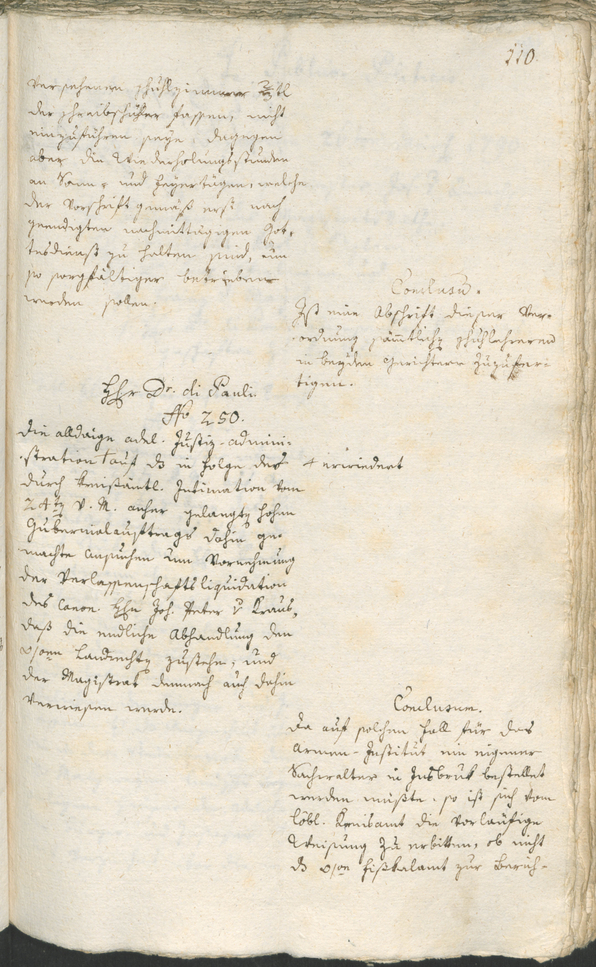 110.
versehenen Schuhlzimmer
der Schreibschüler fassen, nicht
einzuführen seye, dagegen
aber die Wiederholungsstunden
an Sonn- und Feyertägen, welche
der Vorschrift gemäß erst nach
geendigten nachmittägigen Got-
tesdienst zu halten sind, um
so sorgfältiger betrieben
werden sollen.
Conclusum.
Ist eine Abschrift dieser Ver-
ordnung sämtlichen Schuhllehreren
in beyden Gerichtern zuzufer-
tigen.
Hhr Dr. di Pauli.
No 250.
Die alldaige adel. Justiz-admini-
stration + auf in Folge des
+ erwiedert
durch kreisämtl. Intimation vom
24ten v. M. anher gelangten hohen
Gubernialauftrags dahin ge-
machte Ansuchen um Vornehmung
der Verlassenschaftsliquidation
des Canon. Hhn Joh. Peter v Kraus,
daß die endliche Abhandlung den
Landrechten zustehe, und
der Magistrat demnach auch dahin
verwiesen werde.
Conclusum.
Da auf solchen Fall für das
Armen-Institut ein eigener
Sachwalter in Insbruk bestellet
werden müßte, so ist sich vom
löbl. Kreisamt die vorläufige
Weisung zu erbitten, ob nicht
Fißkalamt zur Berich-